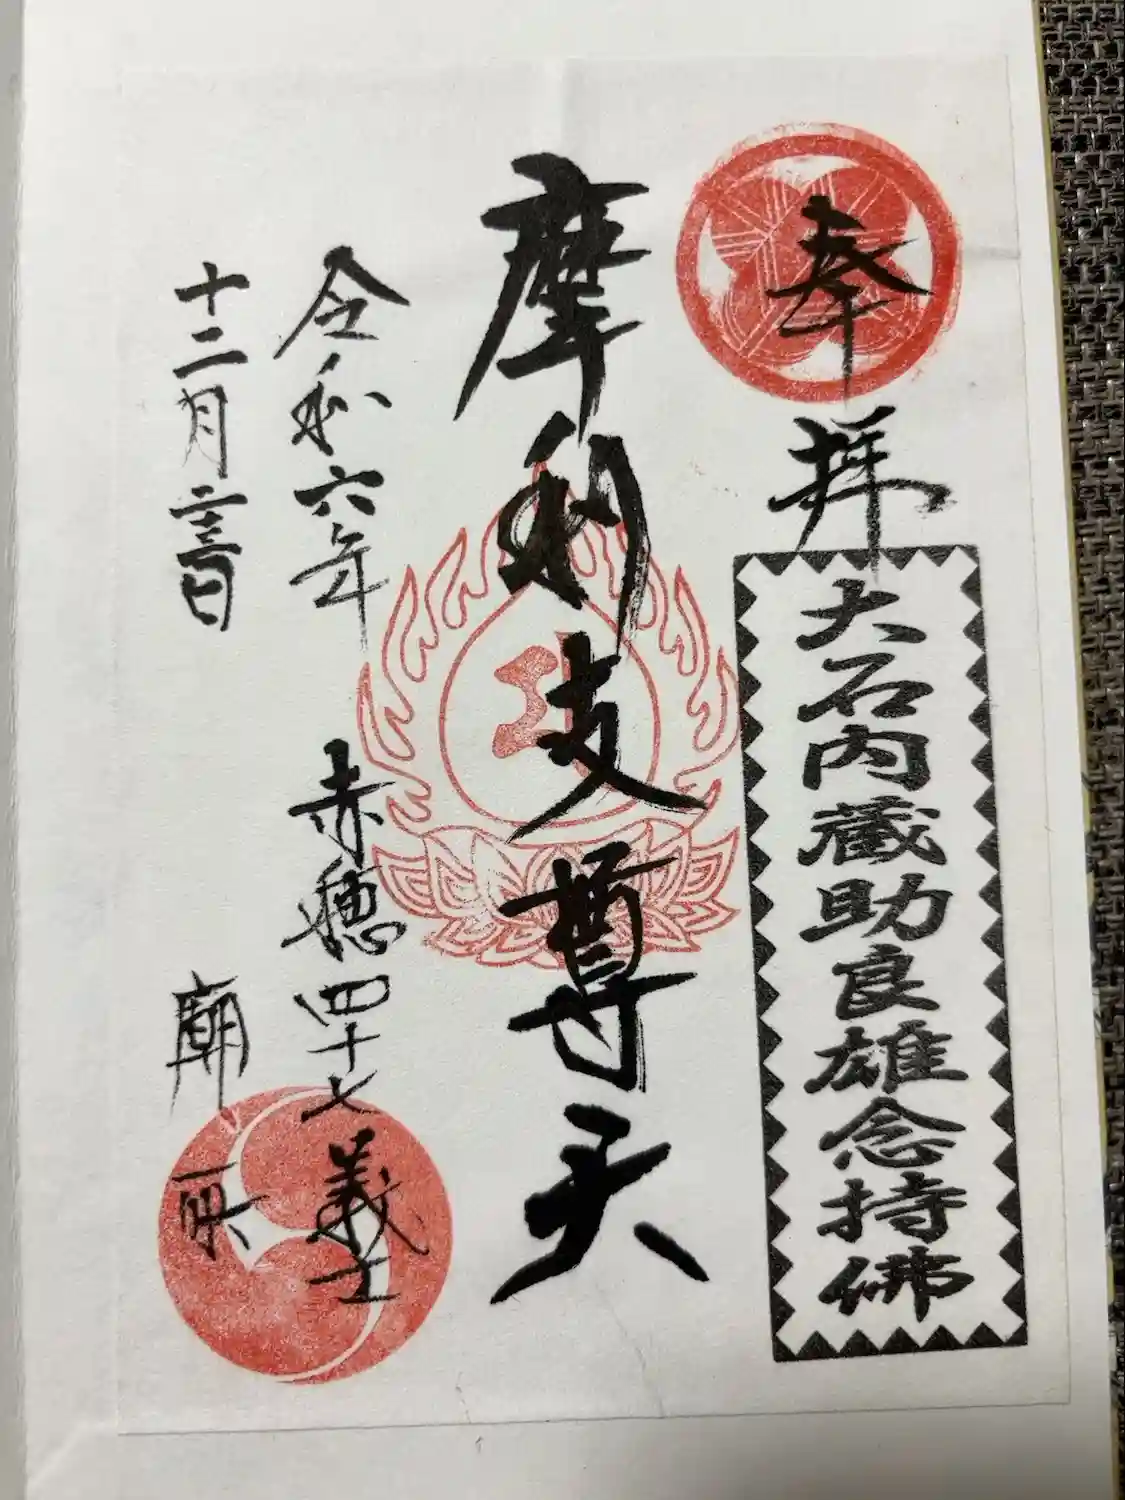 奉拝
大石内蔵助良雄念持佛
摩利支尊天
令和六年
赤穂四十七義士
十二月二十三日
廟所